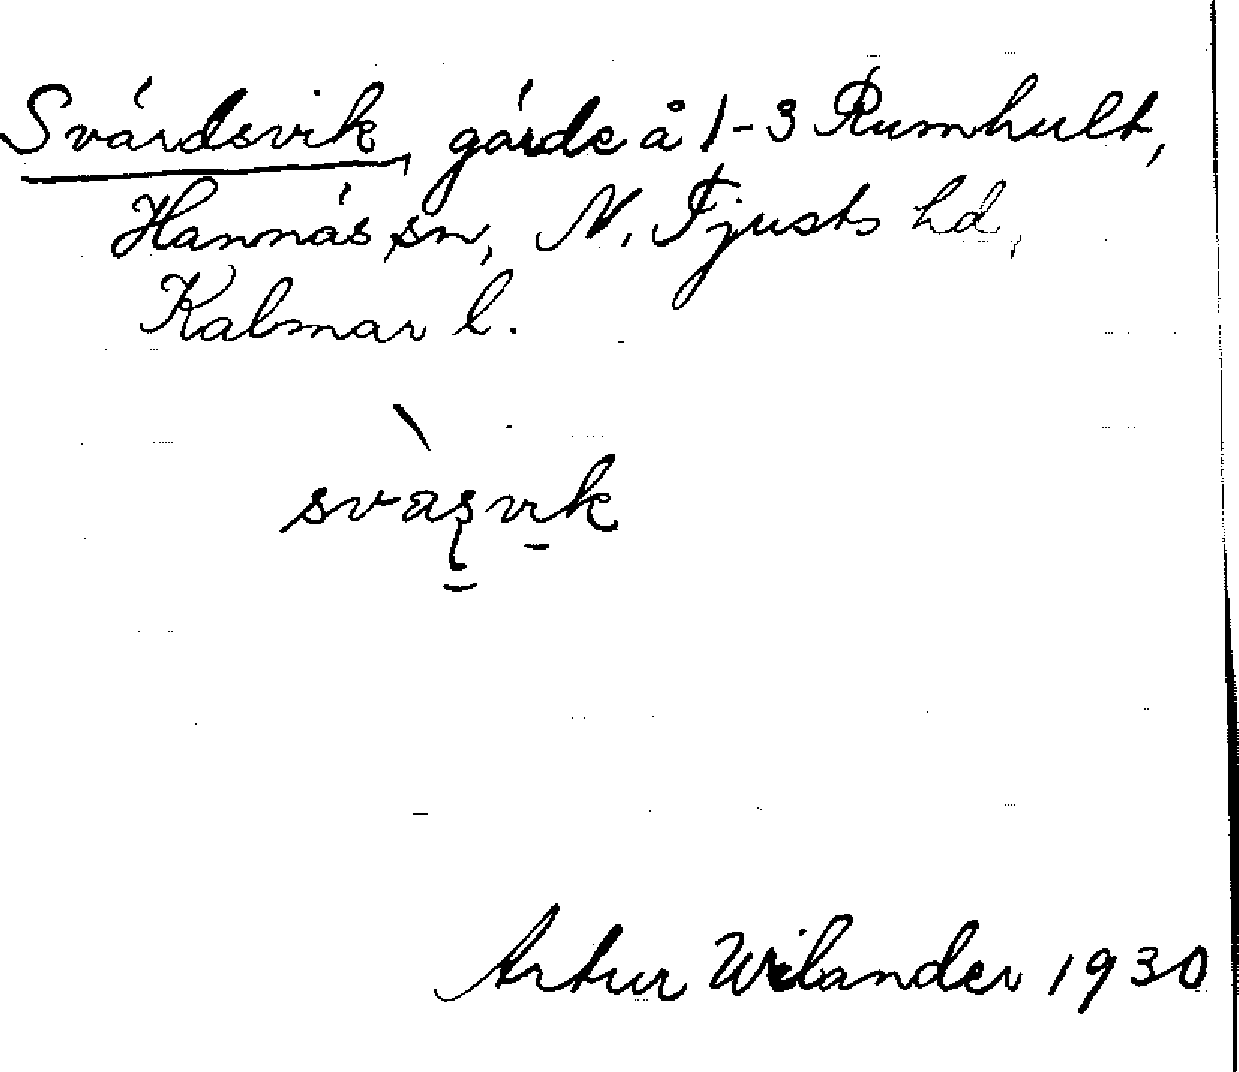 Svärdsvik, gärde å 1-3 Rumhult,
Hannäs sn, N. Tjusts hd,
Kalmar l.
Artur Wilander 1930